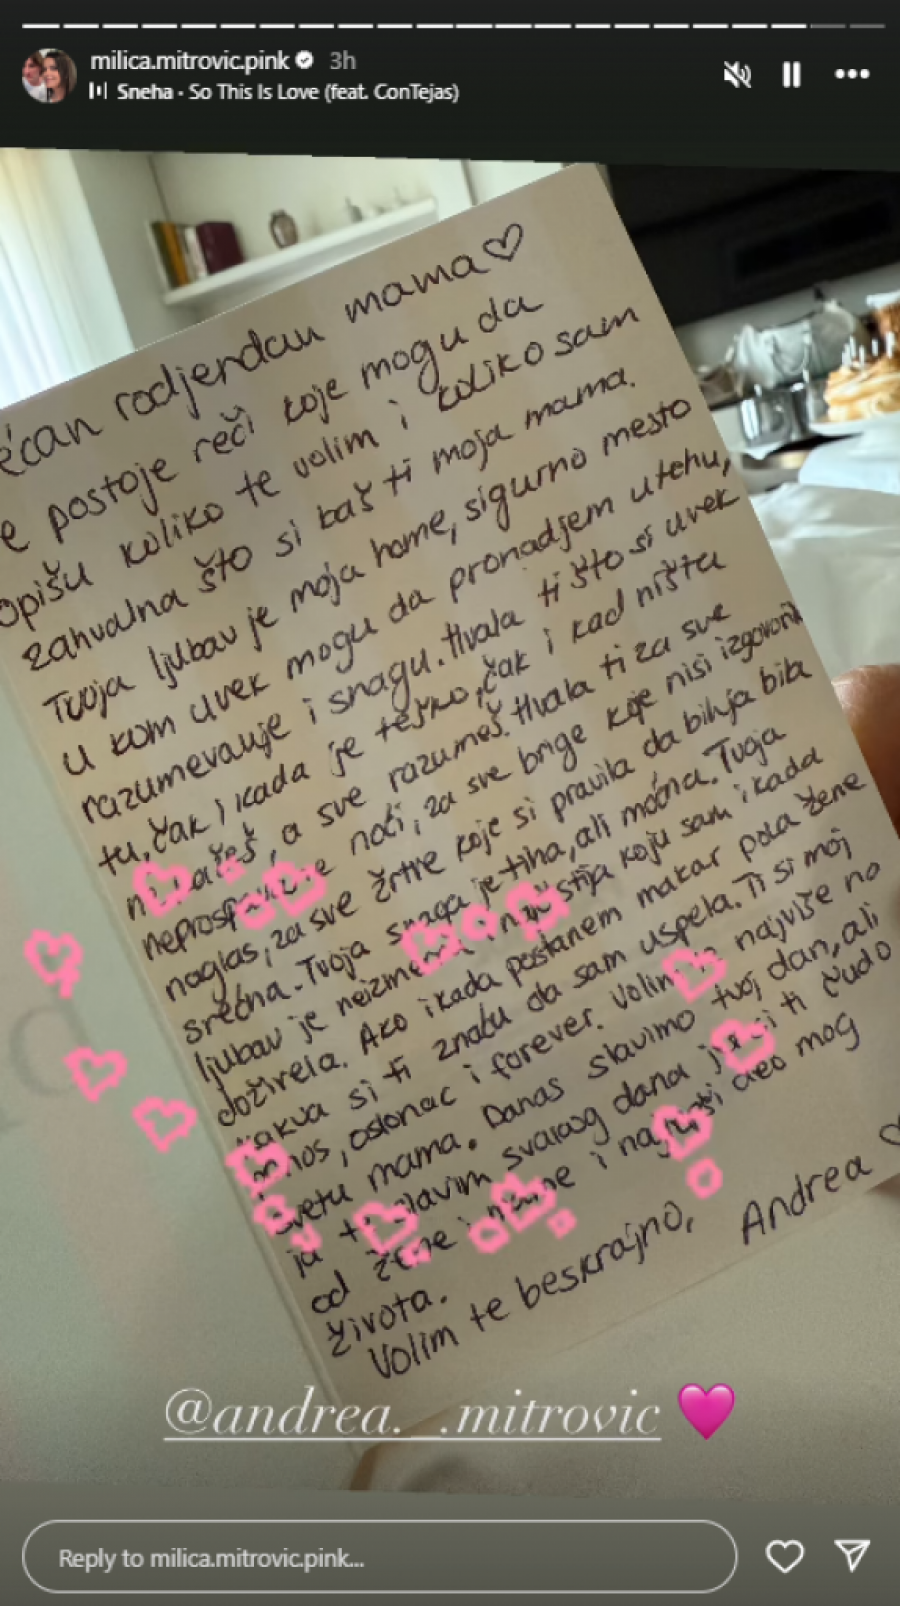 milica.mitrovic.pink 3h
Sneha · So This Is Love (feat. ConTejas)
ećan rodjendan mama
e postoje reči koje mogu da
opišu koliko te volim i koliko sam
zahvalna što si baš ti moja mama.
Tvoja ljubav je moja home, sigurno mesto
u kom uvek mogu da pronadjem utehu,
razumevanje i snagu. Hvala ti što si uvek
tu, čak i kada je teško, čak i kad ništa
ne kažeš, a sve razumeš. Hvala ti za sve
neprospavane noći, za sve brige koje nisi izgovorila
naglas, za sve žrtve koje si pravila da bih ja bila
srećna. Tvoja snaga je tiha, ali moćna. Tvoja
ljubav je neizmerna i koju sam ikada
doživela. Ako ikada postanem makar pola žene
kakva si ti znaću da sam uspela. Ti si moj
ponos, oslonac i forever. Volim najviše na
svetu mama. Danas slavimo tvoj dan, ali
ja te slavim svakog dana jer si ti čudo
od žene i i deo mog
života.
Volim te beskrajno, Andrea
@andrea._.mitrovic
Reply to milica.mitrovic.pink...